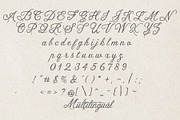 A B C D E F G H I J K L M N
O P Q R S T U V W X Y Z
a b c d e f g h i j k l m
n o p q r s t u v w x y z
0 1 2 3 4 5 6 7 8 9
Multilingual